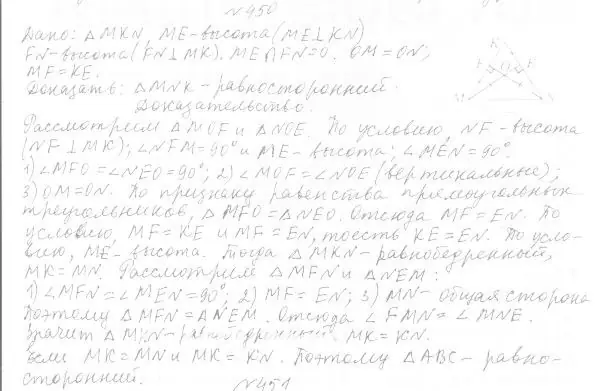 №450
Дано: △MKN, ME-высота (ME⊥KN)
FN-высота (FN⊥MK). ME∩FN=O. OM=ON;
MF=KE.
Доказать: △MNK-равносторонний.
Доказательство.
Рассмотрим △MOF и △NOE. По условию, NF-высота
(NF⊥MK); ∠NFM=90° и ME-высота; ∠MEN=90°.
1) ∠MFO=∠NEO=90°; 2) ∠MOF=∠NOE (вертикальные);
3) OM=ON. По признаку равенства прямоугольных
треугольников, △MFO=△NEO. Отсюда MF=EN. По
условию, MF=KE и MF=EN, тоесть KE=EN. По усло-
вию, ME-высота. Тогда △MKN-равнобедренный,
MK=MN. Рассмотрим △MFN и △NEM:
1) ∠MFN=∠MEN=90°; 2) MF=EN; 3) MN-общая сторона
Поэтому △MFN=△NEM. Отсюда ∠FMN=∠MNE.
Значит △MKN-равнобедренный MK=KN.
Если MK=MN и MK=KN. Поэтому △ABC-равно-
сторонний.
№451
K
F
O
E
M
N